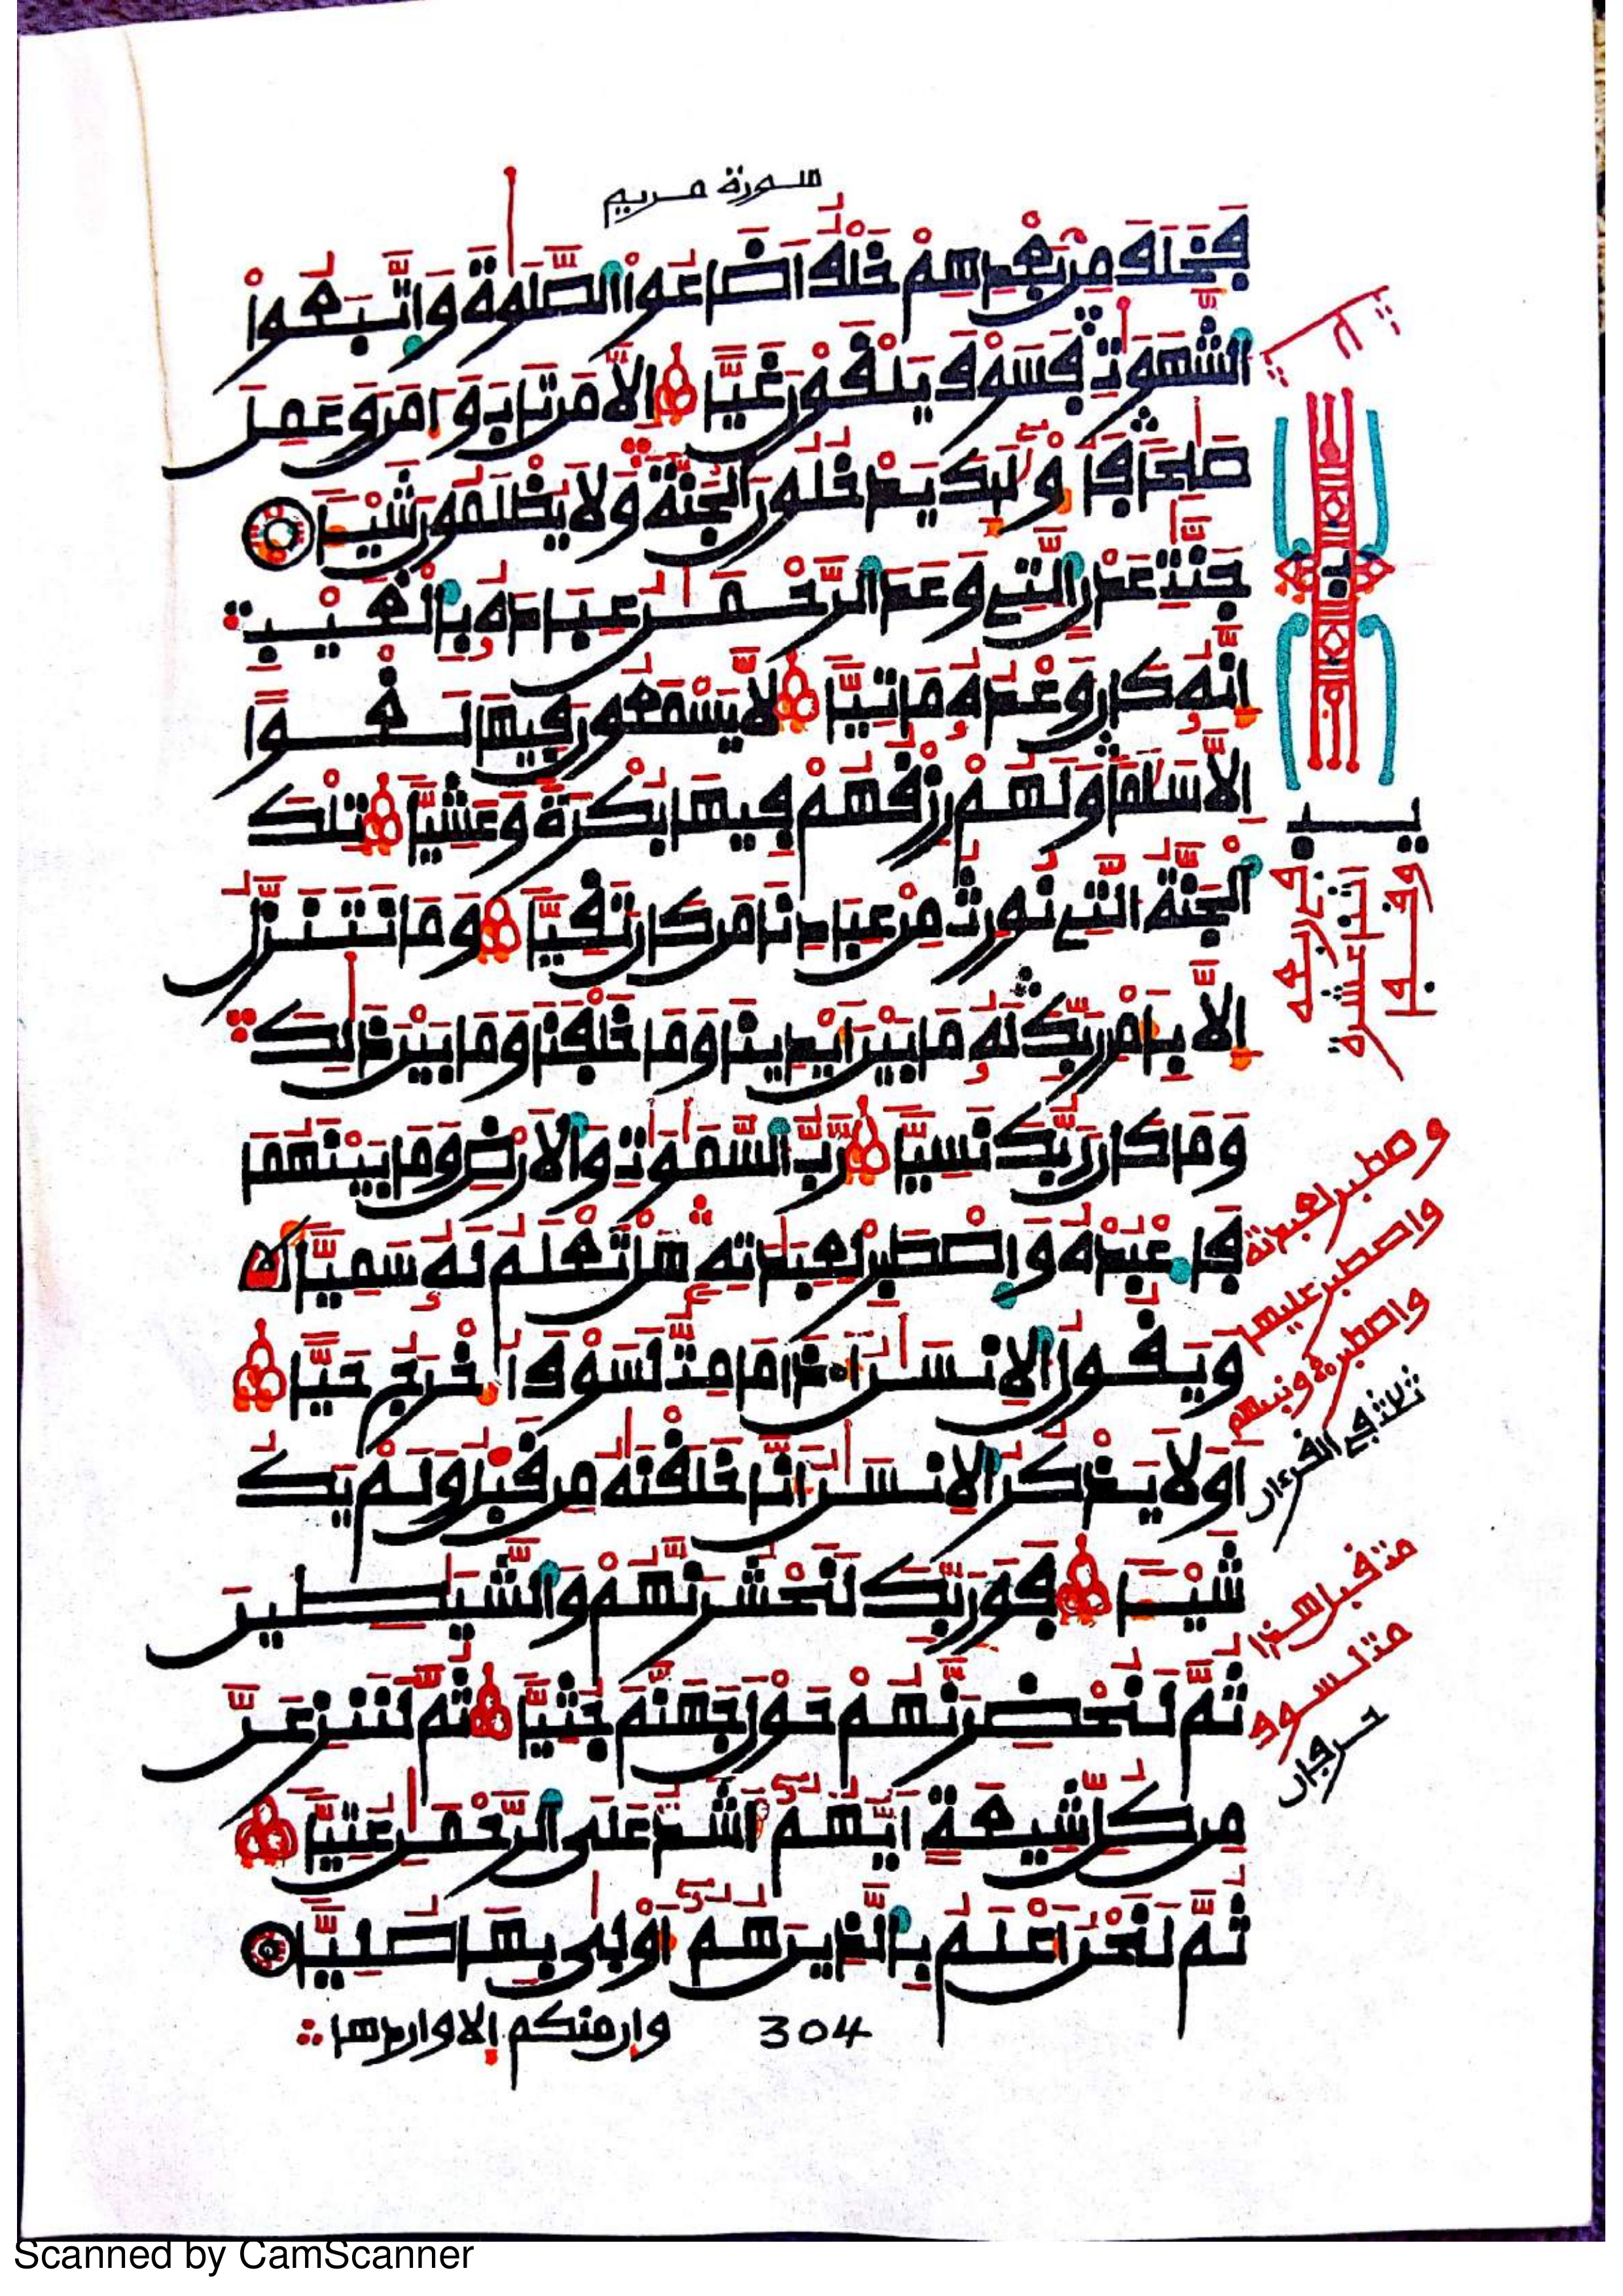 سورة مريم
فَخَلَفَ مِنۢ بَعْدِهِمْ خَلْفٌ اَضَاعُوا۟ الصَّلَوٰةَ وَاتَّبَعُوا۟
الشَّهَوَٰتِ فَسَوْفَ يَلْقَوْنَ غَيًّا اِلَّا مَن تَابَ وَءَامَنَ وَعَمِلَ
صَٰلِحًا فَأُو۟لَٰٓئِكَ يَدْخُلُونَ الْجَنَّةَ وَلَا يُظْلَمُونَ شَيْـًٔا
جَنَّٰتِ عَدْنٍ الَّتِے وَعَدَ الرَّحْمَٰنُ عِبَادَهُۥ بِالْغَيْبِ
إِنَّهُۥ كَانَ وَعْدُهُۥ مَاتِيًّا لَّا يَسْمَعُونَ فِيهَا لَغْوًا
اِلَّا سَلَٰمًا وَلَهُمْ رِزْقُهُمْ فِيهَا بُكْرَةً وَعَشِيًّا تِلْكَ
الْجَنَّةُ الَّتِے نُورِثُ مِنْ عِبَادِنَا مَن كَانَ تَقِيًّا وَمَا نَتَنَزَّلُ
إِلَّا بِأَمْرِ رَبِّكَ لَهُۥ مَا بَيْنَ أَيْدِينَا وَمَا خَلْفَنَا وَمَا بَيْنَ ذَٰلِكَ
وَمَا كَانَ رَبُّكَ نَسِيًّا رَّبُّ السَّمَٰوَٰتِ وَالَارْضِ وَمَا بَيْنَهُمَا
فَاعْبُدْهُ وَاصْطَبِرْ لِعِبَٰدَتِهِۦ هَلْ تَعْلَمُ لَهُۥ سَمِيًّا
وَيَقُولُ الِانسَٰنُ أَ.ذَا مَا مِتُّ لَسَوْفَ أُخْرَجُ حَيًّا
اَوَلَا يَذْكُرُ الِانسَٰنُ أَنَّا خَلَقْنَٰهُ مِن قَبْلُ وَلَمْ يَكُ
شَيْـًٔا فَوَرَبِّكَ لَنَحْشُرَنَّهُمْ وَالشَّيَٰطِينَ
ثُمَّ لَنُحْضِرَنَّهُمْ حَوْلَ جَهَنَّمَ جُثِيًّا ثُمَّ لَنَنزِعَنَّ
مِن كُلِّ شِيعَةٍ اَيُّهُمُۥٓ أَشَدُّ عَلَى الرَّحْمَٰنِ عُتِيًّا
ثُمَّ لَنَحْنُ أَعْلَمُ بِالَّذِينَ هُمُۥٓ أَوْلَىٰ بِهَا صُلِيًّا
وان منكم إلا واردها 304
يب
وقف
اثنا عشرة
في ربعه
وصطبر لعبدته
واصطبر عليها
واصطبر ونبيهم
ثلاث في القرءان
مت قبل هذا
مت لسوف
حرفان
Scanned by CamScanner